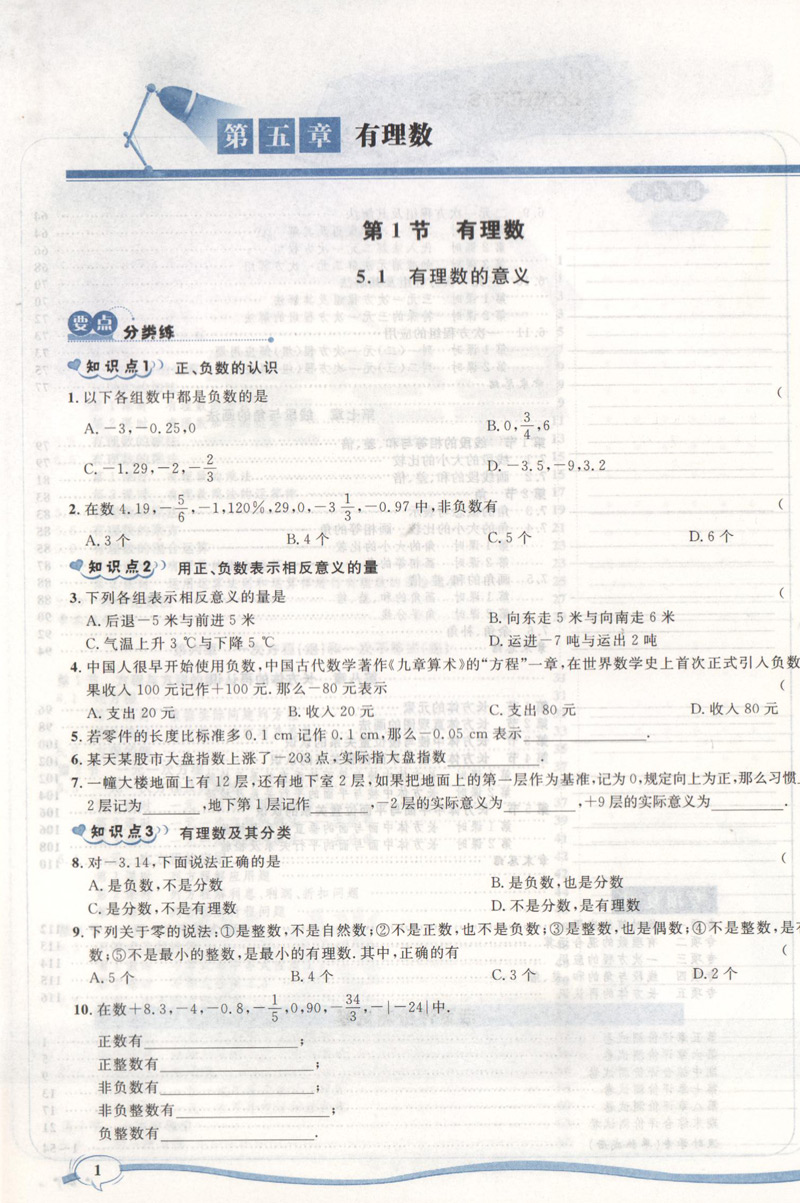 第五章 有理数
第1节 有理数
5.1 有理数的意义
要点 分类练
知识点1 正、负数的认识
1. 以下各组数中都是负数的是 (
A. -3,-0.25,0 B. 0,3/4,6
C. -1.29,-2,-2/3 D. -3.5,-9,3.2
2. 在数4.19,-5/6,-1,120%,29,0,-3 1/3,-0.97中,非负数有 (
A. 3个 B. 4个 C. 5个 D. 6个
知识点2 用正、负数表示相反意义的量
3. 下列各组表示相反意义的量是 (
A. 后退-5米与前进5米 B. 向东走5米与向南走6米
C. 气温上升3℃与下降5℃ D. 运进-7吨与运出2吨
4. 中国人很早开始使用负数,中国古代数学著作《九章算术》的“方程”一章,在世界数学史上首次正式引入负数
果收入100元记作+100元.那么-80元表示 (
A. 支出20元 B. 收入20元 C. 支出80元 D. 收入80元
5. 若零件的长度比标准多0.1cm记作0.1cm,那么-0.05cm表示________.
6. 某天某股市大盘指数上涨了-203点,实际指大盘指数________.
7. 一幢大楼地面上有12层,还有地下室2层,如果把地面上的第一层作为基准,记为0,规定向上为正,那么习惯上
2层记为________,地下第1层记作________,-2层的实际意义为________,+9层的实际意义为________.
知识点3 有理数及其分类
8. 对-3.14,下面说法正确的是 (
A. 是负数,不是分数 B. 是负数,也是分数
C. 是分数,不是有理数 D. 不是分数,是有理数
9. 下列关于零的说法:①是整数,不是自然数;②不是正数,也不是负数;③是整数,也是偶数;④不是整数,是有
数;⑤不是最小的整数,是最小的有理数.其中,正确的有 (
A. 5个 B. 4个 C. 3个 D. 2个
10. 在数+8.3,-4,-0.8,-1/5,0,90,-34/3,-|-24|中.
正数有________;
正整数有________;
非负数有________;
非负整数有________;
负整数有________.
1